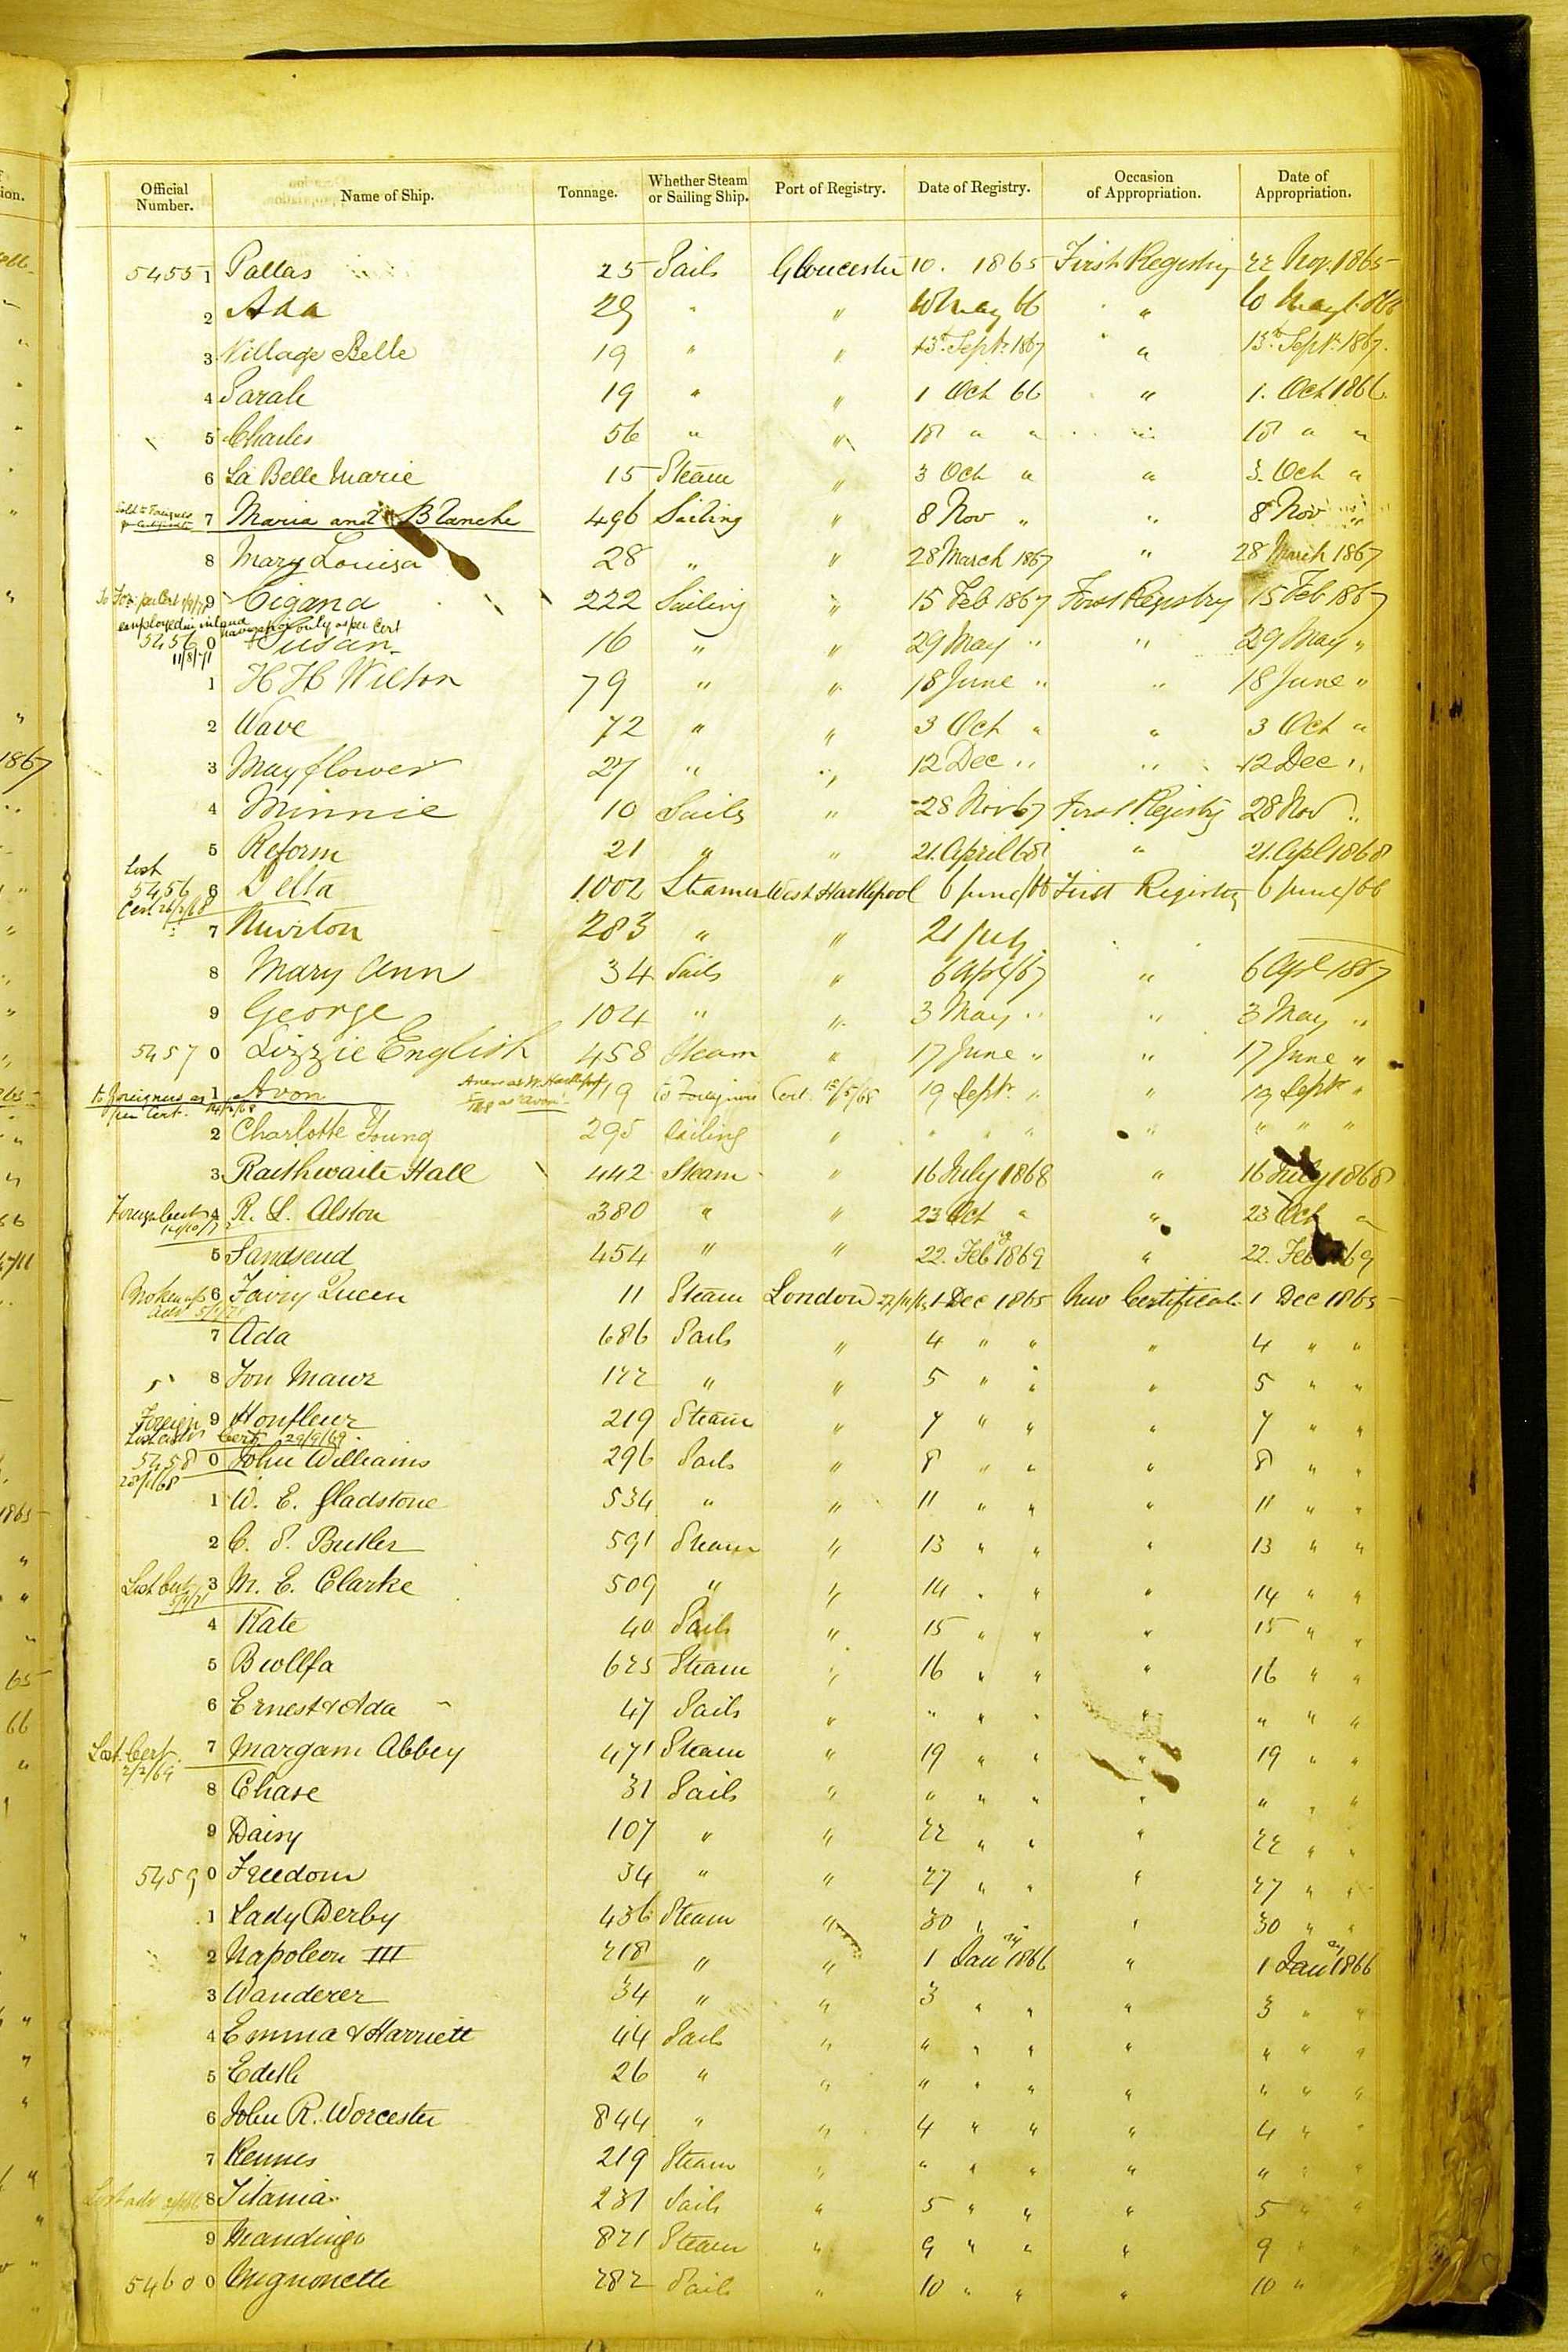 Official Number. Name of Ship. Tonnage. Whether Steam or Sailing Ship. Port of Registry. Date of Registry. Occasion of Appropriation. Date of Appropriation.
5455 1 Pallas 25 Sails Gloucester 10. 1865 First Registry 22 Nov. 1865
2 Ada 29 " " 10 May 66 " 10 May 1866
3 Village Belle 19 " " 13th Septr. 1867 " 13th Septr. 1867.
4 Sarah 19 " " 1 Oct 66 " 1. Oct 1866.
5 Charles 56 " " 18 " " " 18 " "
6 La Belle Marie 15 Steam " 3 Oct " " 3. Oct "
Sold to Foreigners 7 Maria and Blanche 496 Sailing " 8 Nov " " 8 Nov "
8 Mary Louisa 28 " " 28 March 1867 " 28 March 1867
9 Cigana 222 Sailing " 15 Feb 1867 First Registry 15 Feb 1867
employed in inland navigation only as per Cert
5456 0 Susan 16 " " 29 May " " 29 May "
11/8/71
1 H H Wilson 79 " " 18 June " " 18 June "
2 Wave 72 " " 3 Oct " " 3 Oct "
3 Mayflower 27 " " 12 Dec " " 12 Dec "
4 Minnie 10 Sails " 28 Nov 67 First Registry 28 Nov "
5 Reform 21 " " 21. April 68 " 21. Apl 1868
Lost
5456 6 Delta 1002 Steamer West Hartlepool 6 June/66 First Registry 6 June/66
Cert
7 283 " " 21 July
8 Mary Ann 34 Sails " 6 Apl/67 " 6 Apl 1867
9 George 104 " " 3 May " " 3 May "
5457 0 Lizzie English 458 Steam " 17 June " " 17 June "
to Foreigners as per Cert. 1 Avon 19 Septr " " 19 Septr "
2 Charlotte Young 295 Sailing " " " " " " " "
3 Raithwaite Hall 442 Steam " 16 July 1868 " 16 July 1868
4 R. L. Alston 380 " " 23 Oct " " 23 Oct "
5 Sandsend 454 " " 22. Feby 1869 " 22. Feb 1869
Broken up 6 Fairy Queen 11 Steam London 1 Dec 1865 New Certificate 1 Dec 1865
7 Ada 686 Sails " 4 " " " 4 " "
8 Ton Mawr 122 " " 5 " " " 5 " "
Foreign 9 Honfleur 219 Steam " 7 " " " 7 " "
Cert. 29/9/69
5458 0 John Williams 296 Sails " 8 " " " 8 " "
1 W. E. Gladstone 534 " " 11 " " " 11 " "
2 C. S. Butler 591 Steam " 13 " " " 13 " "
Lost Cert 3 M. E. Clarke 509 " " 14 " " " 14 " "
4 Kate 40 Sails " 15 " " " 15 " "
5 Bwllfa 623 Steam " 16 " " " 16 " "
6 Ernest & Ada 47 Sails " " " " " " " "
Lost Cert. 7 Margam Abbey 471 Steam " 19 " " " 19 " "
2/2/69
8 Chase 31 Sails " " " " " " " "
9 Daisy 107 " " 22 " " " 22 " "
5459 0 Freedom 34 " " 27 " " " 27 " "
1 Lady Derby 436 Steam " 30 " " " 30 " "
2 Napoleon III 218 " " 1 Jany 1866 " 1 Jany 1866
3 Wanderer 34 " " 3 " " " 3 " "
4 Emma & Harriett 44 Sails " " " " " " " "
5 Edith 26 " " " " " " " " "
6 John R. Worcester 844 " " 4 " " " 4 " "
7 Rennes 219 Steam " " " " " " " "
8 Titania 231 Sails " 5 " " " 5 " "
9 Mandingo 821 Steam " 9 " " " 9 " "
5460 0 Mignonette 282 Sails " 10 " " " 10 "